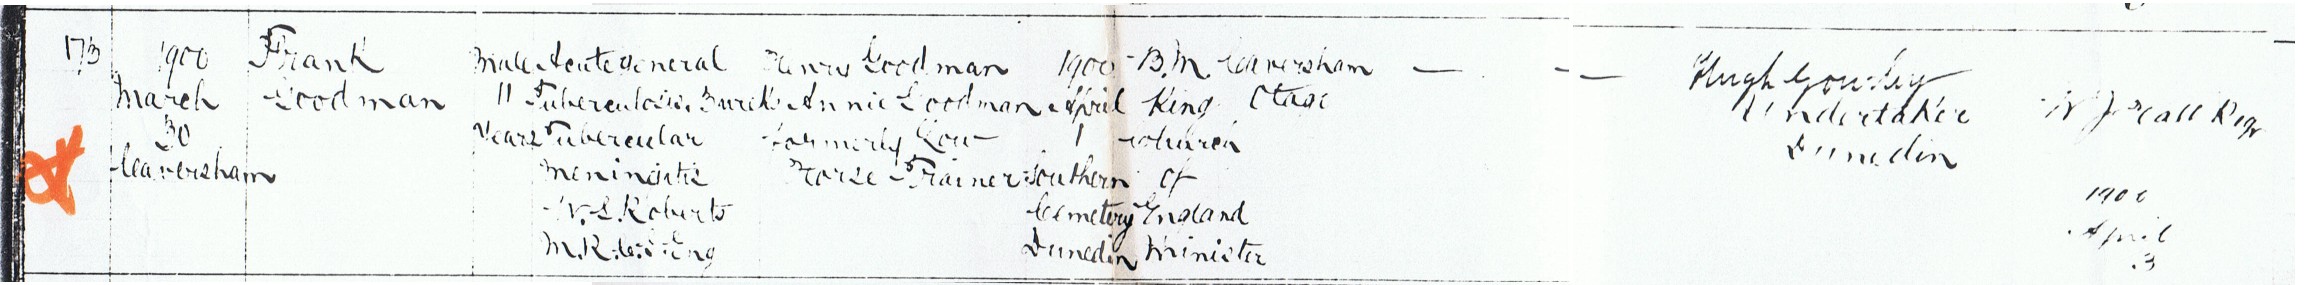 173 1900 Frank Male Acute General Henry Goodman 1900 B.M. Caversham — - — Hugh Gourley
March Goodman 11 Tuberculosis. 3 weeks Annie Goodman April King Otago Undertaker W J Hall Regr
30 Years Tubercular formerly Low 1 Church Dunedin
Caversham Meningitis Horse Trainer Southern of 1900
W. S. Roberts Cemetery England April
M.R.C.S. Eng Dunedin Minister 3